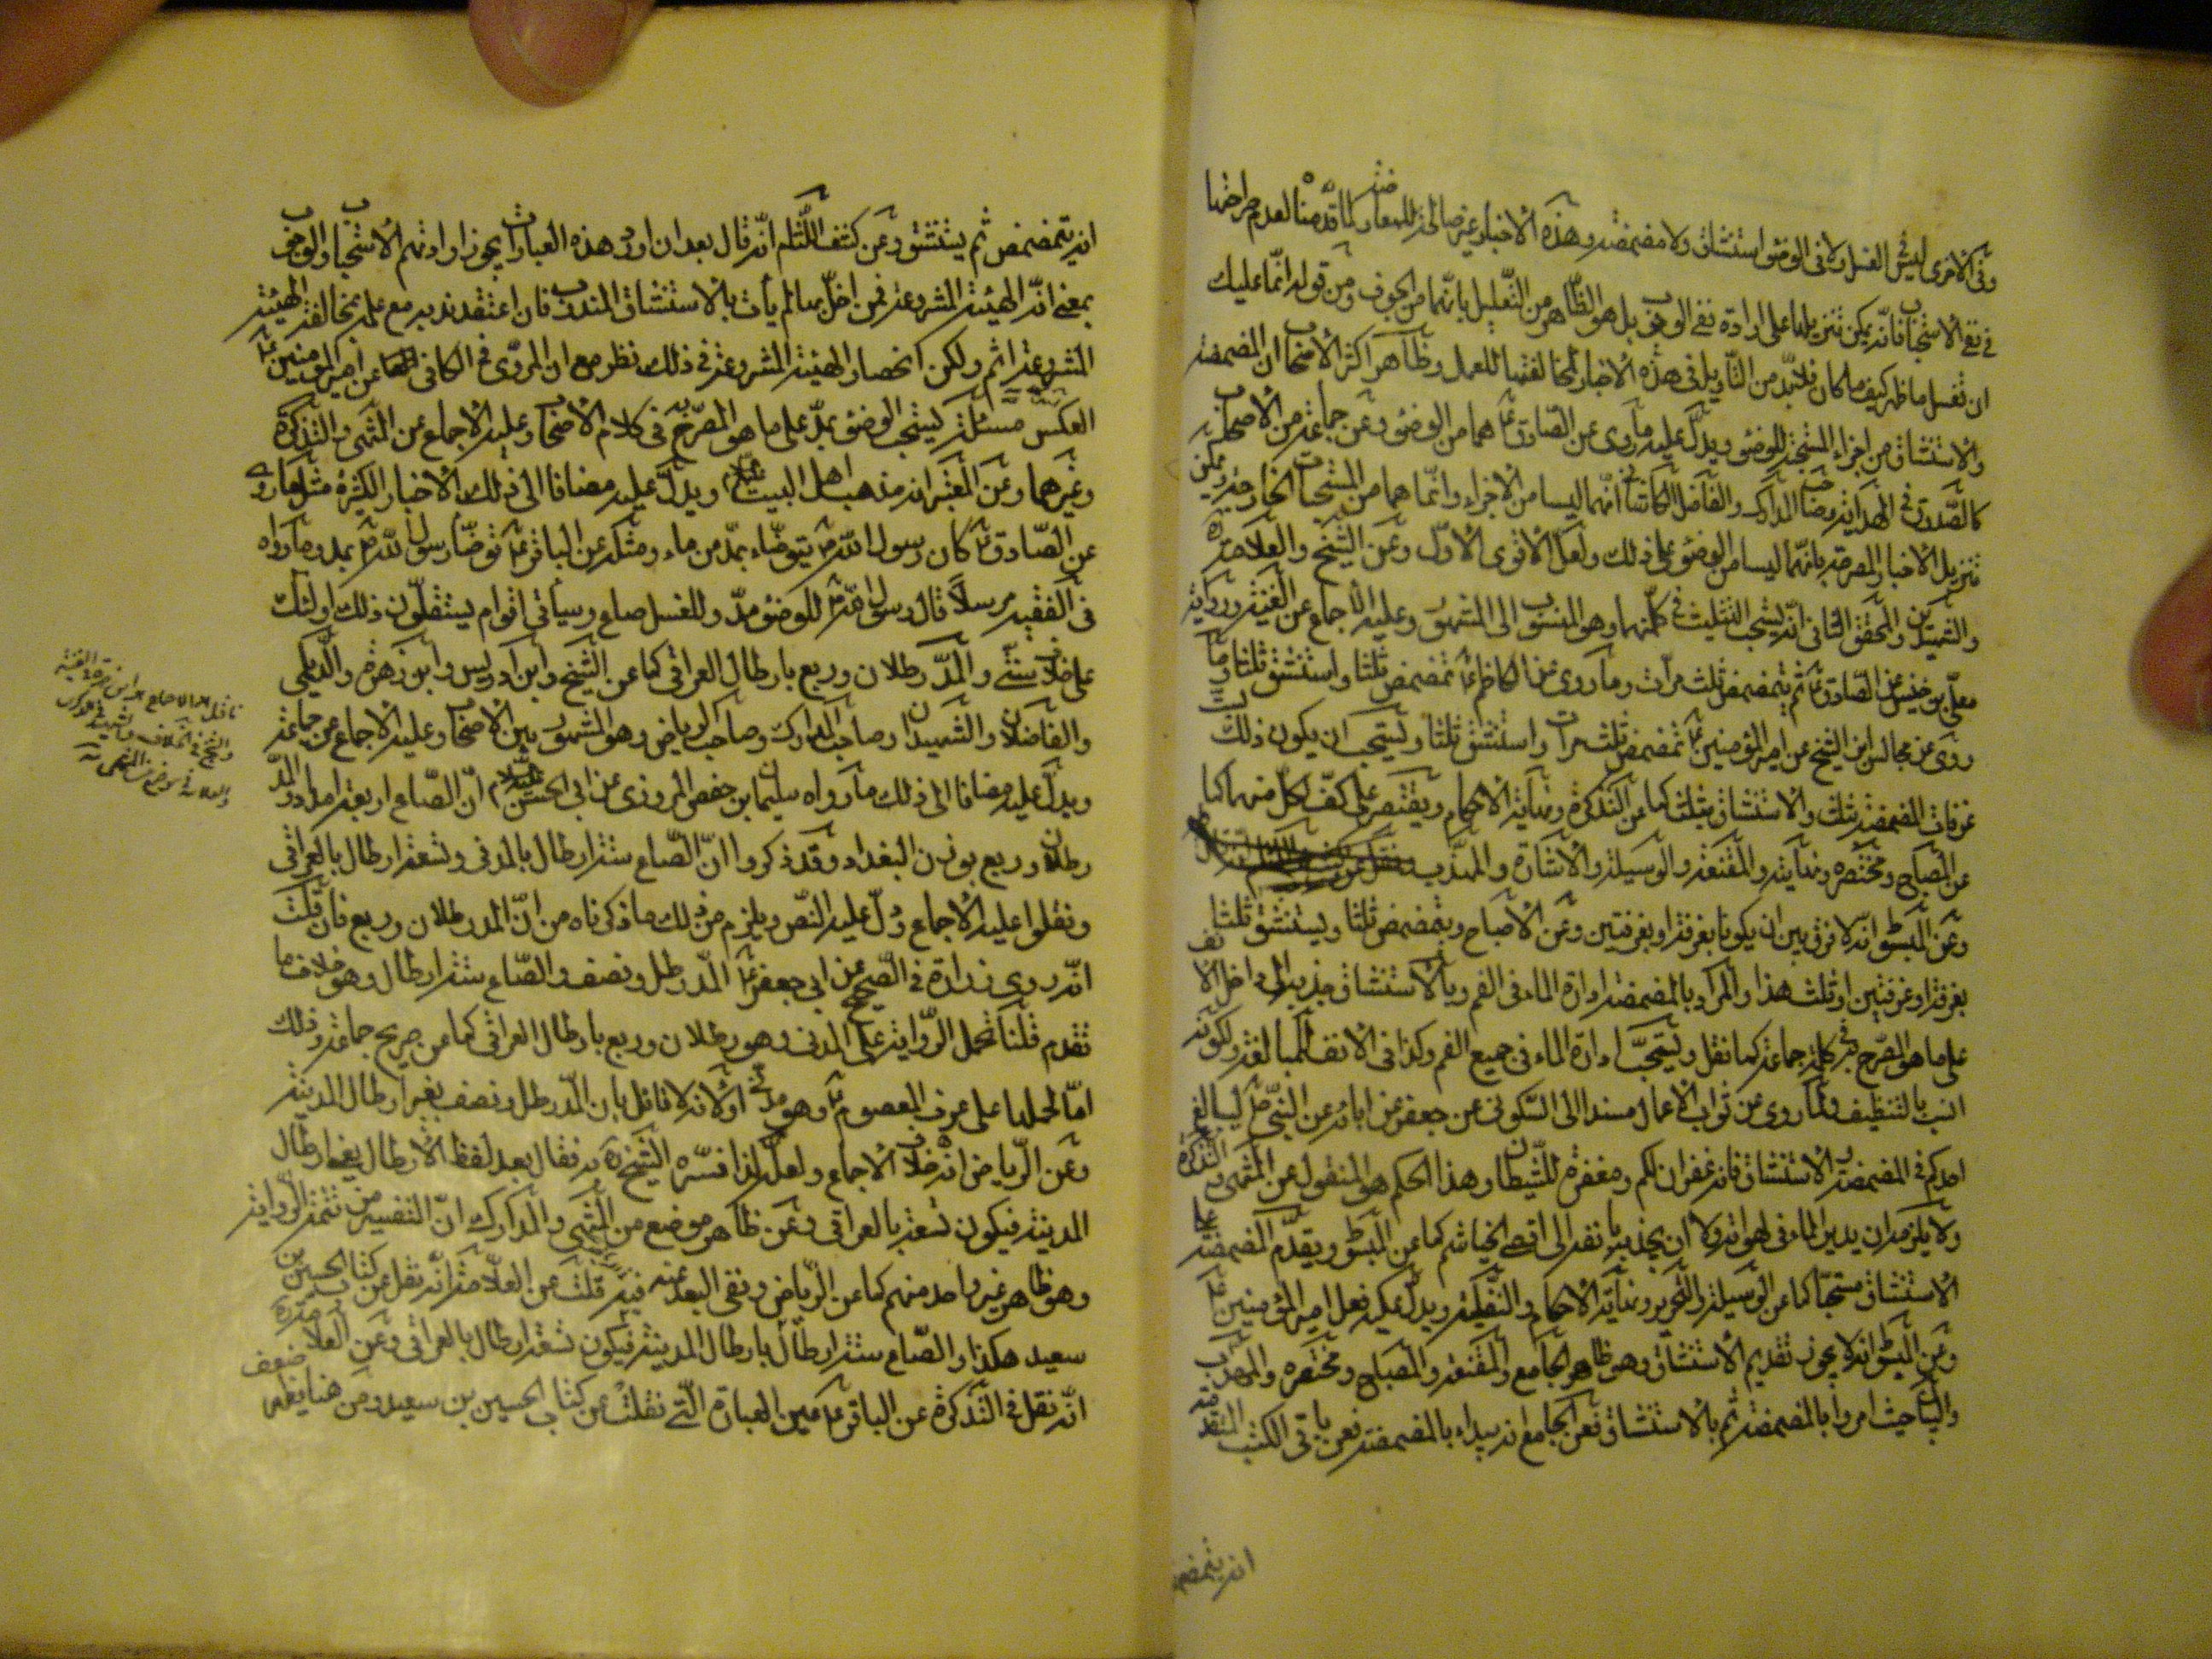 وفى الاخرى ليس فى الغسل ولا فى الوضوء استنشاق ولا مضمضه وهذه الاخبار غير صالحة للمعارضة لما قدمنا لعدم صراحتها
فى نفى الاستحباب فانه يمكن تنزيلها على ارادة نفى الوجوب بل هو الظاهر من التعليل بانهما من الجوف ومن قوله انما عليك
ان تغسل ما ظهر كيف ما كان فلا بد من التاويل فى هذه الاخبار لمخالفتها للعمل وظاهر اكثر الاصحاب ان المضمضة
والاستنشاق من اجزاء المستحبة للوضوء ويدل عليه ما روى عن الصادق ع هما من الوضوء وعن جماعة من الاصحاب
كالصدوق فى الهداية وصاحب المدارك والفاضل الكاشانى انهما ليسا من الاجزاء وانما هما من المستحبات الخارجة ويمكن
تنزيل الاخبار المصرحة بانهما ليسا من الوضوء على ذلك ولعل الاقوى الاول وعن الشيخ والعلامة
والشهيدين والمحقق الثانى انه يستحب التثليث فى كلمنهما وهو المنسوب الى المشهور وعليه الاجماع عن الغنية ورواية
معلى بن خنيس عن الصادق ع ثم يتمضمض ثلث مرات وما روى عن الكاظم ع تمضمض ثلثا واستنشق ثلثا وما
روى عن مجالس ابن الشيخ عن امير المؤمنين ع تمضمض ثلث مرات واستنشق ثلثا ويستحب ان يكون ذلك بست
غرفات المضمضة بثلث والاستنشاق بثلث كما عن التذكرة ونهاية الاحكام ويقتصر على كف لكل منهما كما
عن المصباح ومختصره ونهايته والمقنعة والوسيلة والاشارة والمهذب
وعن المبسوط انه لا فرق بين ان يكونا بغرفة او بغرفتين وعن الاصباح ويتمضمض ثلثا ويستنشق ثلثا
بغرفة او غرفتين او ثلث هذا والمراد بالمضمضة ادارة الماء فى الفم وبالاستنشاق جذبه الى داخل الانف
على ما هو المصرح به فى كلمة جماعة كما نقل ويستحب ادارة الماء فى جميع الفم وكذا فى الانف للمبالغة ولكونه
انسب بالتنظيف ولما روى عن ثواب الاعمال مسندا الى السكونى عن جعفر عن ابائه عن النبى ص ليبالغ
احدكم فى المضمضة والاستنشاق فانه غفران لكم ومغفرة للشيطان وهذا الحكم هو المنقول عن المنتهى والتذكرة
ولا يلزمه ان يدير الماء فى لهواته ولا ان يجذبه بانفه الى اقصى الخياشم كما عن المبسوط ويقدم المضمضة على
الاستنشاق مستحبا كما عن الوسيلة والتحرير ونهاية الاحكام والنفلية ويدل عليه فعل امير المؤمنين ع
وعن المبسوط انه لا يجوز تقديم الاستنشاق وهو ظاهر الجامع والمقنعة والمصباح ومختصره والمهذب
والبيان حيث امروا بالمضمضة ثم بالاستنشاق فعن الجامع انه يبداء بالمضمضة فعن باقى الكتب المتقدمة
انه يتمضمض
انه يتمضمض ثم يستنشق وعن كشف اللثام انه قال بعد ان اورد هذه العبارات يجوز ارادتهم الاستحباب والوجوب
بمعنى انه الهيئة المشروعة فمن اخل بها لم يأت بالاستنشاق المندوب فان اعتقد ندبه مع علمه بمخالفة الهيئة
المشروعة اثم ولكن انحصار الهيئة المشروعة فى ذلك نظر مع ان المروى فى الكافى عن امير المؤمنين ع
العكس مسئلة يستحب الوضوء بمد على ما هو المصرح به فى كلام الاصحاب وعليه الاجماع عن المنتهى والتذكرة
وغيرهما وعن المعتبر انه مذهب اهل البيت عليهم السلام ويدل عليه مضافا الى ذلك الاخبار الكثيرة مثل ما روى
عن الصادق ع كان رسول الله ص يتوضاء بمد من ماء ومثله عن الباقر ع توضأ رسول الله ص بمد وما رواه
فى الفقيه مرسلا قال رسول الله ص للوضوء مد وللغسل صاع وسيأتى اقوام يستقلون ذلك اولئك
على خلاف سنتى والمد رطلان وربع بارطال العراقى كما عن الشيخ وابن ادريس وابن زهرة والديلمى
والفاضلان والشهيدان وصاحب المدارك وصاحب الرياض وهو المشهور بين الاصحاب وعليه الاجماع عن جماعة
ويدل عليه مضافا الى ذلك ما رواه سليمان بن حفص المروزى عن ابى الحسن عليه السلام ان الصاع اربعة امداد والمد
رطلان وربع بوزن البغداد وقد ذكروا ان الصاع ستة ارطال بالمدنى وتسعة ارطال بالعراقى
ونقلوا عليه الاجماع ودل عليه النص ويلزم من ذلك ما ذكرناه من ان المد رطلان وربع فان قلت
انه روى زرارة فى الصحيح عن ابى جعفر ع المد رطل ونصف والصاع ستة ارطال وهو خلاف ما
تقدم قلنا تحمل الرواية على المدنى وهو رطلان وربع بارطال العراقى كما عن صريح جماعة وذلك
اما لحملها على عرف المعصوم ع وهو مدنى او لانه لا قائل بان المد رطل ونصف بغير ارطال المدينة
وعن الرياض انه خلاف الاجماع ولعله لذا فسره الشيخ ره به فقال بعد لفظ الارطال يعنى ارطال
المدينة فيكون تسعة بالعراقى وعن ظاهر موضع من المنتهى والمدارك ان التفسير من تتمة الرواية
وهو ظاهر غير واحد منهم كما عن الرياض ونفى البعد عنه فيه قلت عن العلامة انه نقل عن كتاب الحسين بن
سعيد هكذا والصاع ستة ارطال بارطال المدينة فيكون تسعة ارطال بالعراقى وعن العلامة ره
انه نقل فى التذكرة عن الباقر ع عين العبارة التى نقلت عن كتاب الحسين بن سعيد ومن هنا يظهر ضعف